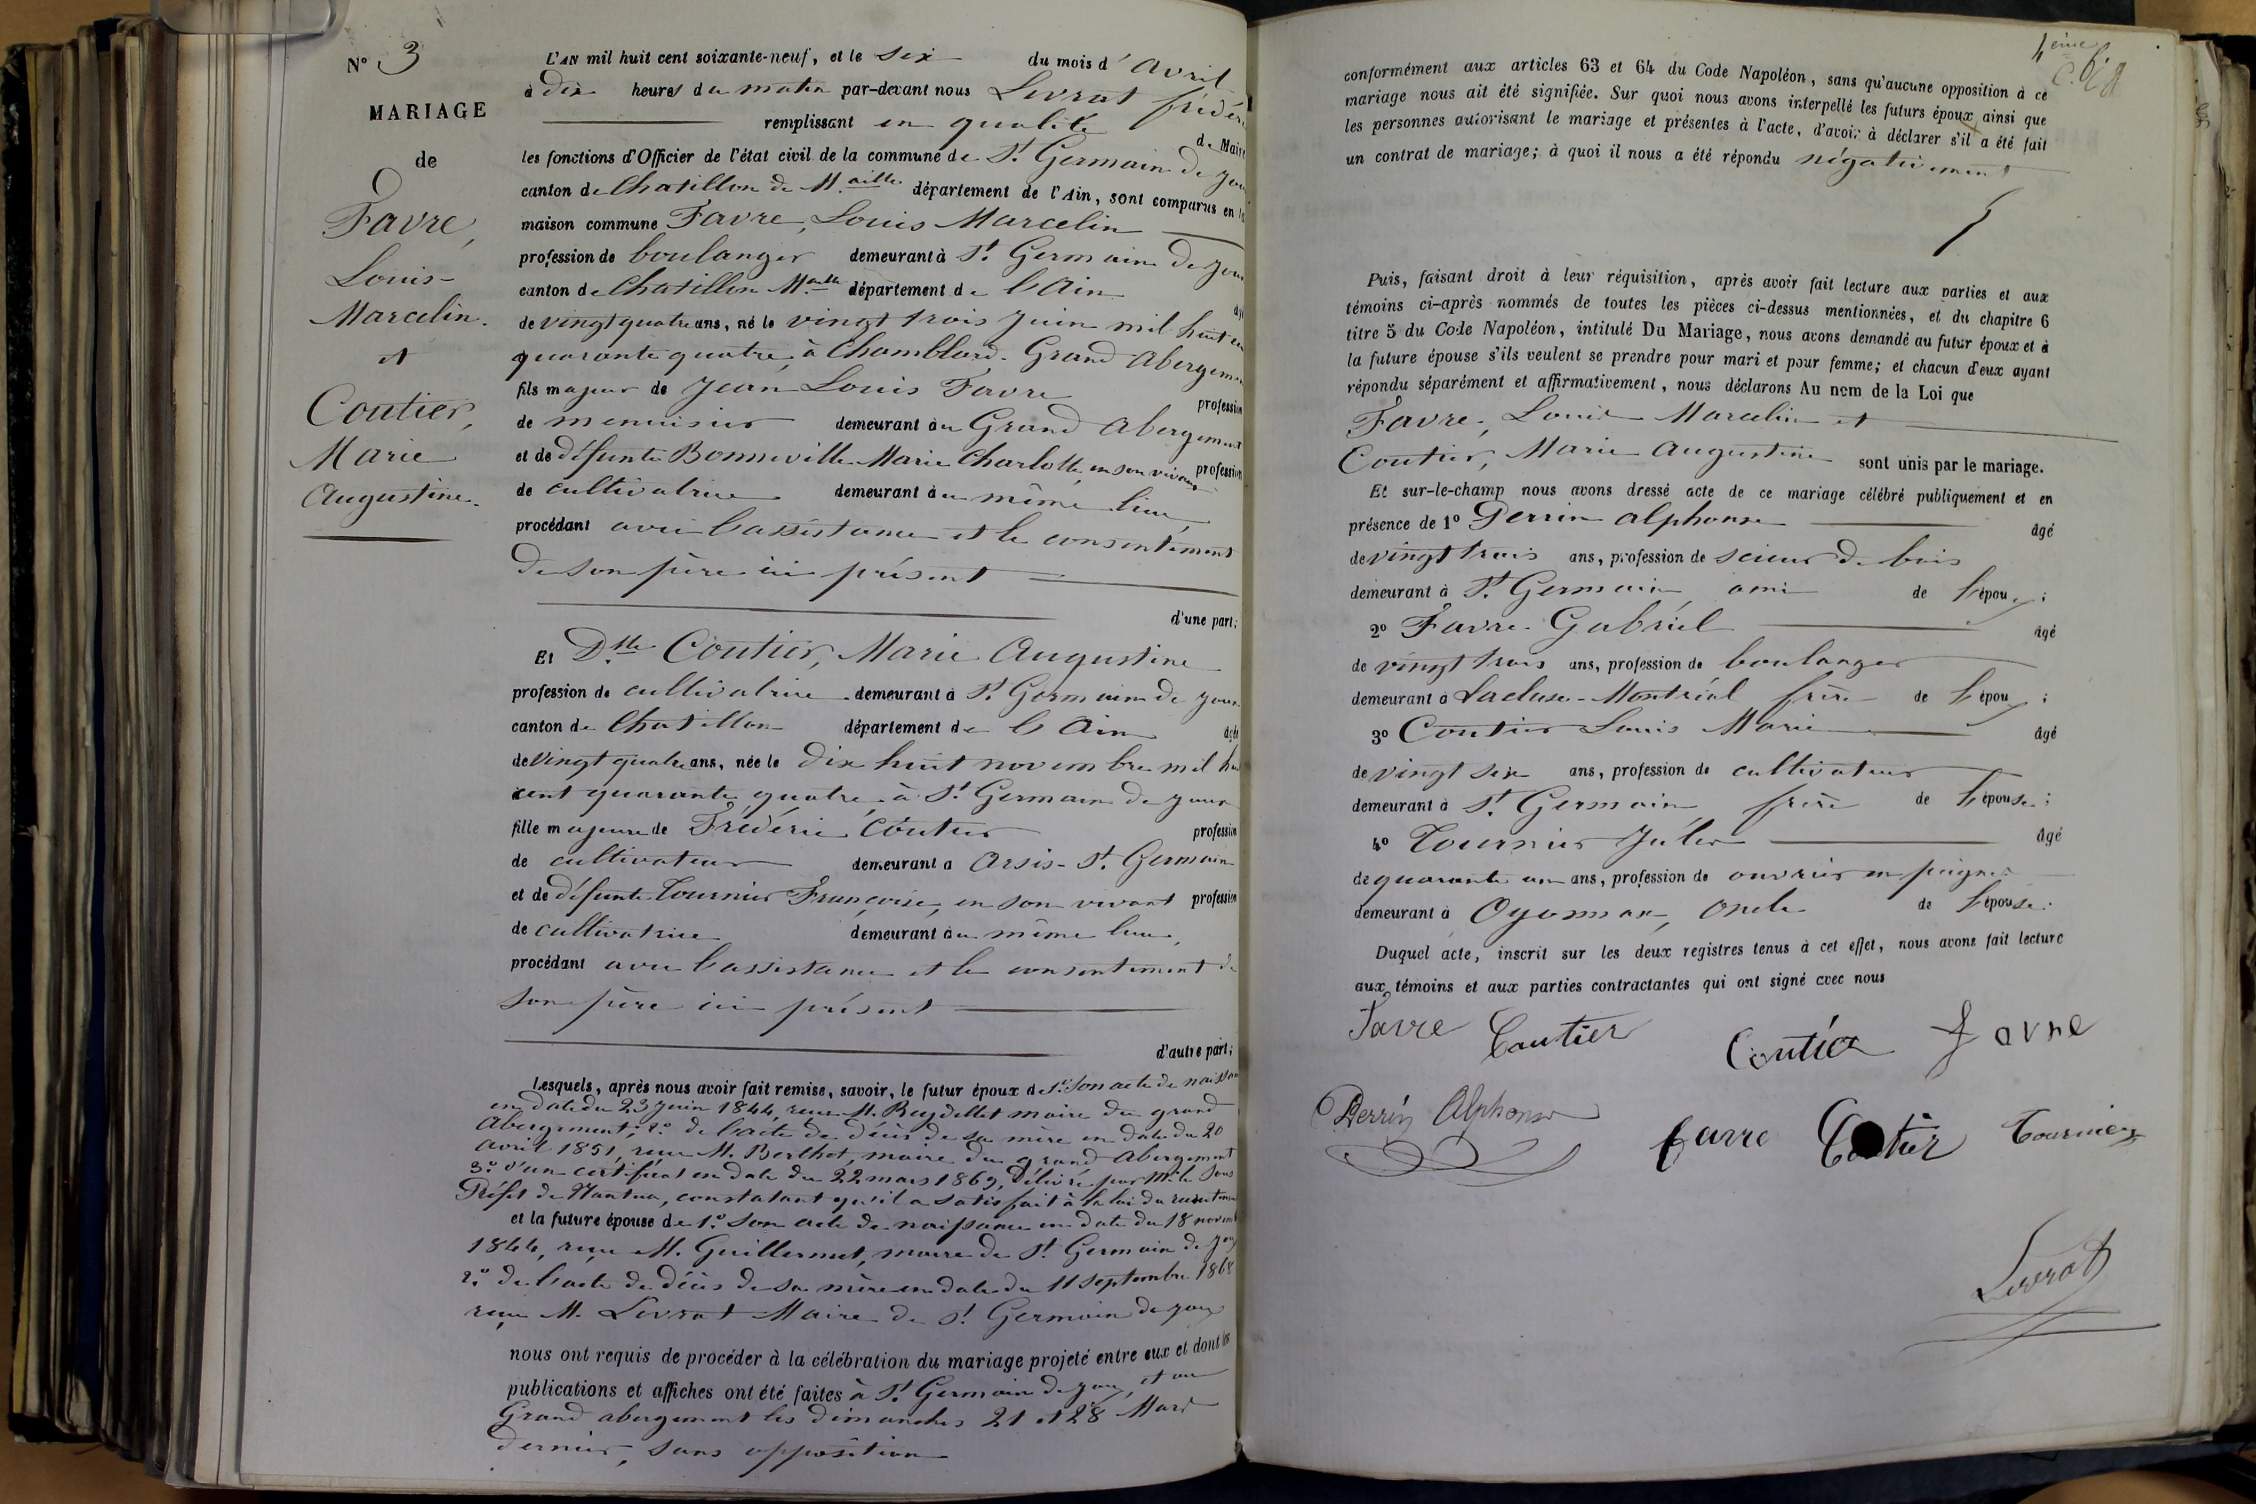 N° 3
MARIAGE
de
Favre,
Louis-
Marcelin.
et
Coutier,
Marie
Augustine.
L'AN mil huit cent soixante-neuf, et le six du mois d'avril
à dix heures du matin par-devant nous Livrat frédér
remplissant en qualité de Maire
les fonctions d'Officier de l'état civil de la commune de St. Germain de Joux
canton de Chatillon de M.aille département de l'Ain, sont comparus en la
maison commune Favre, Louis Marcelin
profession de boulanger demeurant à St. Germain de Joux
canton de Chatillon M.aille département de l'Ain
âgé
de vingt quatre ans, né le vingt trois Juin mil huit cen
quarante quatre, à Chamblard. Grand Abergement
fils majeur de Jean Louis Favre profession
de menuisier demeurant au Grand Abergement
et de défunte Bonneville Marie Charlotte, en son vivant profession
de cultivatrice demeurant au même lieu,
procédant avec l'assistance et le consentement
de son père ici présent
d'une part;
Et Dlle Coutier, Marie Augustine
profession de cultivatrice demeurant à St. Germain de Joux
canton de Chatillon département de l'Ain âgée
de vingt quatre ans, née le dix huit novembre mil hui
cent quarante quatre à St. Germain de Joux
fille majeure de Frédéric Coutier profession
de cultivateur demeurant à Arsis-St. Germain
et de défunte Tournier Françoise, en son vivant profession
de cultivatrice demeurant au même lieu,
procédant avec l'assistance et le consentement de
son père ici présent
d'autre part;
Lesquels, après nous avoir fait remise, savoir, le futur époux de 1° son acte de naissan
en date du 23 Juin 1844, reçu M. Beydellet maire du grand
Abergement; 2° de l'acte de décès de sa mère en date du 20
avril 1851, reçu M. Berthet, maire du grand Abergement
3° d'un certificat en date du 22 mars 1869, délivré par Mr. le Sous
Préfet de Nantua, constatant qu'il a satisfait à la loi du recrutement
et la future épouse de 1° son acte de naissance en date du 18 novem
1844, reçu M. Guillermet, maire de St. Germain de Joux
2° de l'acte de décès de sa mère en date du 11 septembre 1868
reçu M. Livrat Maire de St. Germain de Joux
nous ont requis de procéder à la célébration du mariage projeté entre eux et dont les
publications et affiches ont été faites à St. Germain de Joux, et au
Grand abergement les dimanches 21 et 28 Mars
dernier, sans opposition
4ème
conformément aux articles 63 et 64 du Code Napoléon, sans qu'aucune opposition à ce
mariage nous ait été signifiée. Sur quoi nous avons interpellé les futurs époux, ainsi que
les personnes autorisant le mariage et présentes à l'acte, d'avoir à déclarer s'il a été fait
un contrat de mariage; à quoi il nous a été répondu négativement
Puis, faisant droit à leur réquisition, après avoir fait lecture aux parties et aux
témoins ci-après nommés de toutes les pièces ci-dessus mentionnées, et du chapitre 6
titre 5 du Code Napoléon, intitulé Du Mariage, nous avons demandé au futur époux et à
la future épouse s'ils veulent se prendre pour mari et pour femme; et chacun d'eux ayant
répondu séparément et affirmativement, nous déclarons Au nom de la Loi que
Favre, Louis Marcelin et
Coutier, Marie Augustine sont unis par le mariage.
Et sur-le-champ nous avons dressé acte de ce mariage célébré publiquement et en
présence de 1° Perrin alphonse âgé
de vingt trois ans, profession de scieur de bois
demeurant à St. Germain, ami de l'époux;
2° Favre Gabriel âgé
de vingt trois ans, profession de boulanger
demeurant à Lacluse-Montréal frère de l'époux;
3° Coutier Louis Marie âgé
de vingt six ans, profession de cultivateur
demeurant à St. Germain, frère de l'épouse;
4° Tournier Jules âgé
de quarante un ans, profession de ouvrier en peignes
demeurant à Oyonnax, oncle de l'épouse.
Duquel acte, inscrit sur les deux registres tenus à cet effet, nous avons fait lecture
aux témoins et aux parties contractantes qui ont signé avec nous
Favre Coutier Coutier Favre
Perrin Alphonse favre Coutier Tournier
Livrat